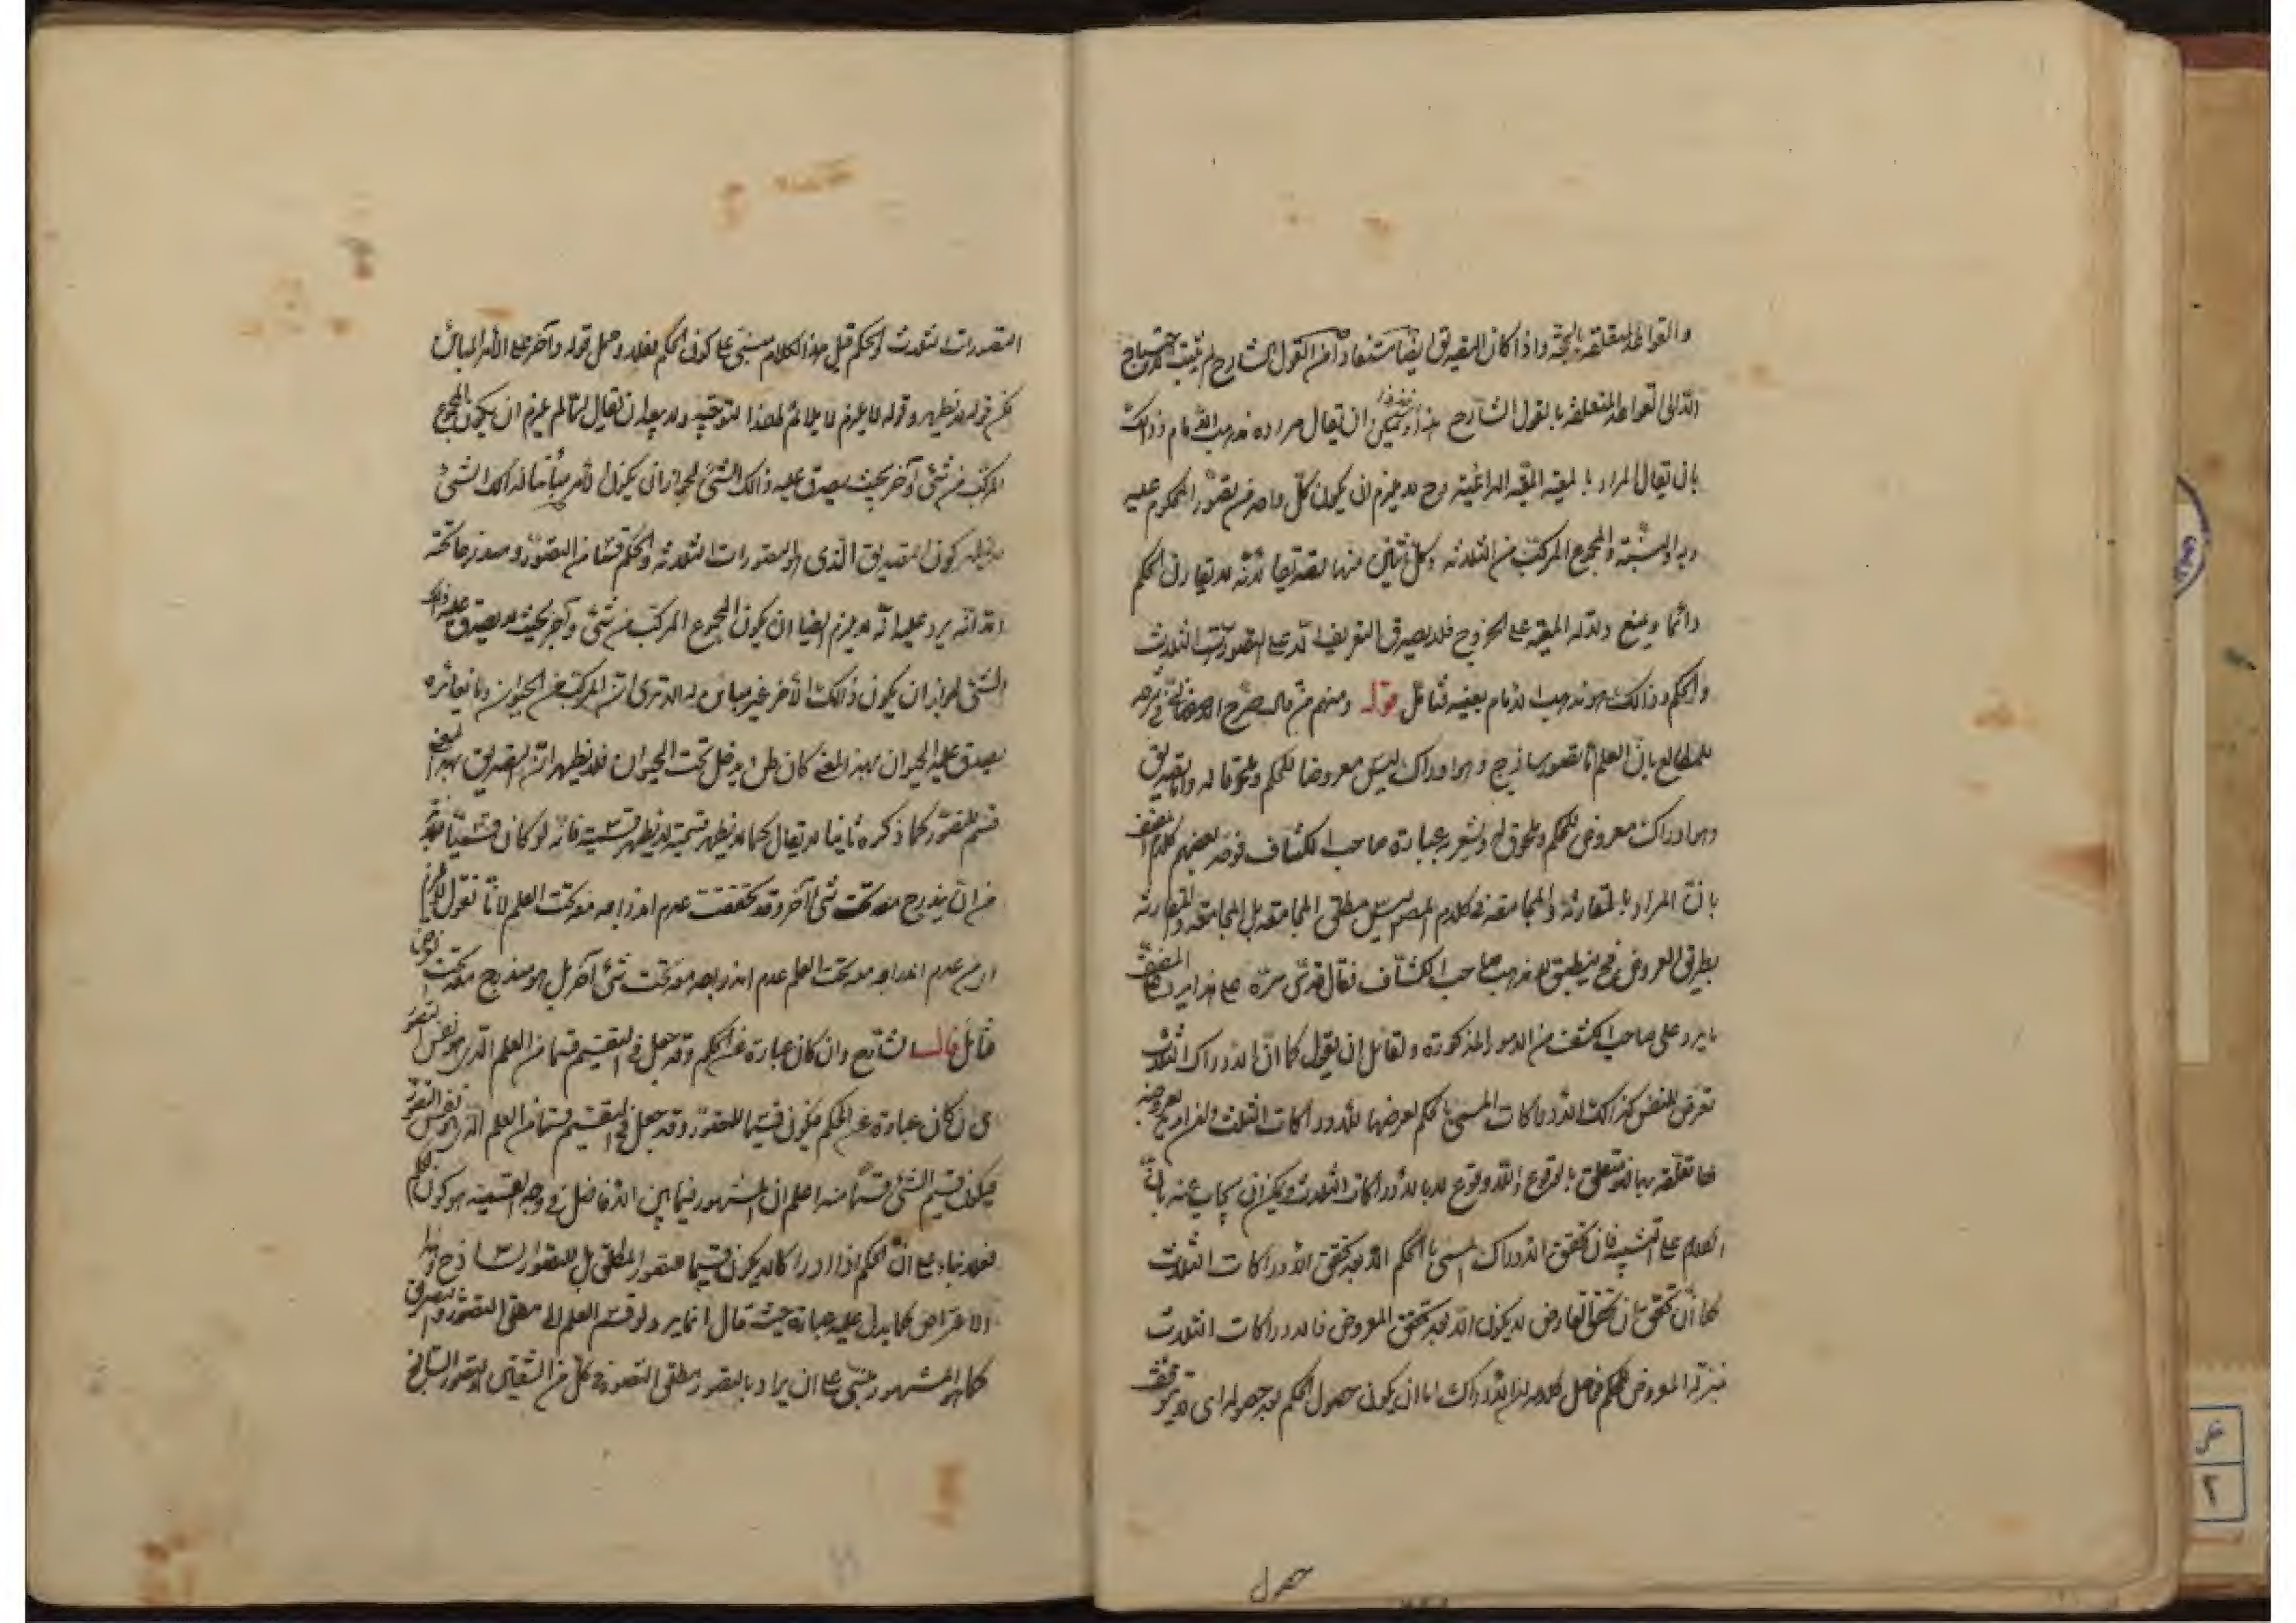 والقواعد المتعلقة بالحجة واذا كان التصديق ايضا مستفادا من القول الشارح لم يثبت الاحتياج
الا الى القواعد المتعلقة بالقول الشارح هذا ويمكن ان يقال مراده مذهب الامام وذلك
بان يقال المراد بالمعية المعية الدائمية وح لا يلزم ان يكون كل واحد من تصور المحكوم عليه
وبه والنسبة والمجموع المركب من الثلاثة وكل اثنين منها تصديقا لانه لا يقارن الحكم
دائما ويمنع دلالة المعية على الخروج فلا يصدق التعريف الا على التصورات الثلاث
والحكم وذلك هو مذهب الامام بعينه فتأمل قوله ومنهم من قال صرح المصنف في شرحه
للمطالع بان العلم اما تصور ساذج وهو ادراك ليس معروضا للحكم وملحوقا له واما تصديق
وهو ادراك معروض للحكم وملحوق له ويشعر به عبارة صاحب الكشاف فوجه بعضهم كلام المصنف
بان المراد بالمقارنة والمجامعة في كلام المص ليس مطلق المجامعة بل المجامعة والمقارنة
بطريق العروض فح ينطبق على مذهب صاحب الكشاف فقال قدس سره على هذا يرد على المصنف
ما يرد على صاحب الكشف من الامور المذكورة ولقائل ان يقول كما ان الادراكات الثلاث
تعرض للنفس كذلك الادراكات المسمى بالحكم لعرضها للادراكات الثلث
لها تعلقه بها فمتعلق بالوقوع واللاوقوع لا بالادراكات الثلاث ويمكن ان يجاب عنه بان
الكلام على التشبيه فان تحقق الادراك المسمى بالحكم الا بعد تحقق الادراكات الثلاث
كما ان تحقق العارض لا يكون الا بعد تحقق المعروض فالادراكات الثلاث
بمنزلة المعروض للحكم فحاصل كلامه ان الادراك اما ان يكون حصول الحكم بعد حصوله اى
حصول
التصورات الثلاث والحكم قيل هذا الكلام مبنى على كون الحكم فعلا وحمل قوله وآخر على الامر المباين
لكن قوله لا يظهر وقوله لا يلزم لا يلائم لهذا التوجيه ولا يبعد ان يقال لما لم يلزم ان يكون المجموع
المركب من شئ وآخر بحيث يصدق عليه ذلك الشئ لجواز ان يكون الامر مباينا لذلك الشئ
لا يظهر كون التصديق الذى هو التصورات الثلاثة والحكم قسما من التصور ومندرجا تحته
الا انه يرد عليه انه لا يلزم ايضا ان يكون المجموع المركب من شئ وآخر بحيث لا يصدق عليه ذلك
الشئ لجواز ان يكون ذلك الآخر غير مباين له الا ترى ان المركب من الحيوان وما يغايره
يصدق عليه الحيوان بهذا المعنى كان يدخل تحت الحيوان فلا يظهر ان التصديق بهذا المعنى
قسم للتصور كما ذكره ثانيا لا يقال كما لا يظهر قسمية لا يظهر قسيمية فانه لو كان قسيما فلا بد
من ان يندرج معه تحت شئ آخر وقد تحققت عدم اندراجه معه تحت العلم لانا نقول لا يلزم
من عدم اندراجه معه تحت العلم عدم اندراجه معه تحت شئ آخر بل هو مندرج معه تحت
فتأمل قال الشارح وان كان عبارة عن الحكم وقد جعل في التقسيم قسما من العلم الذى هو نفس التصور
اى ان كان عبارة عن الحكم فيكون قسيما للتصور وقد جعل في التقسيم قسما من العلم الذى هو نفس التصور
فيكون قسيم الشئ قسما منه اعلم ان المشهور فيما بين الافاضل في وجه القسمية هو كون الحكم
فعلا بناء على ان الحكم اذا ادراكا لا يكون قسيما للتصور المطلق بل للتصور الساذج وهذا
الاعتراض كما يدل عليه عبارة حيث قال انما يرد لو قسم العلم الى مطلق التصور والتصديق
كما هو المشهور مبنى على ان يراد بالتصور مطلق التصور في كل من الشقين او تصور الساذج